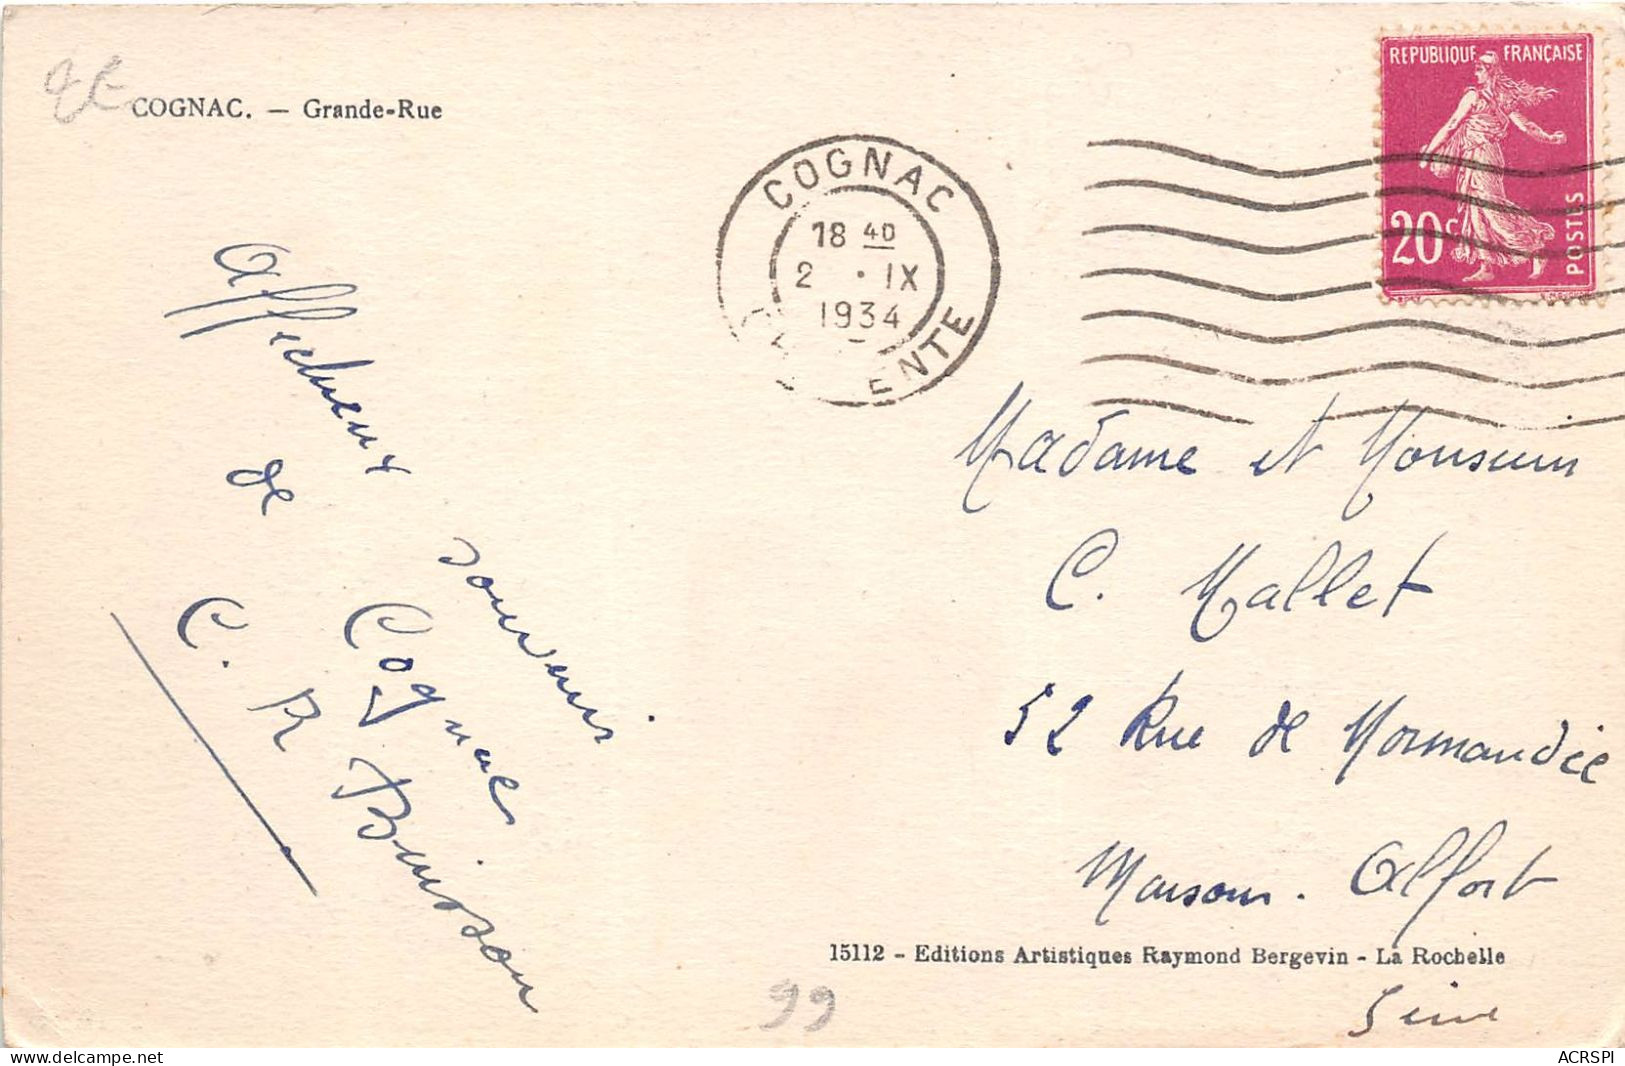 COGNAC. — Grande-Rue
REPUBLIQUE FRANÇAISE
20c
POSTES
COGNAC
18 40
2 · IX
1934
ENTE
Affectueux souvenir
de Cognac
C. R Buisson
Madame et Monsieur
C. Mallet
52 Rue de Normandie
Maisons-Alfort
15112 - Editions Artistiques Raymond Bergevin - La Rochelle
Seine
99
www.delcampe.net
ACRSPI